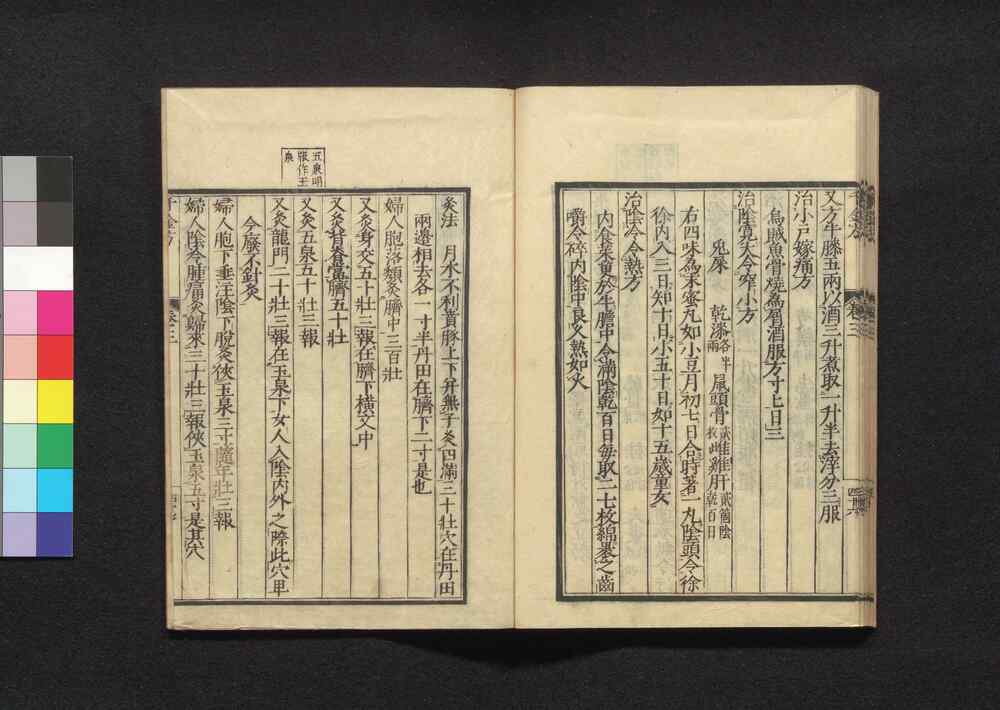 又方牛膝五兩以酒三升煮取一升半去滓分三服
治小戶嫁痛方
烏賊魚骨燒為屑酒服方寸匕日三
治陰寬大令窄小方
兔屎 乾漆各半兩 鼠頭骨貳枚 雌雞肝貳箇陰乾百日
右四味為末蜜丸如小豆月初七日合時著一丸陰頭令徐
徐內入三日知十日小五十日如十五歲童女
治陰冷令熱方
內食茱萸於牛膽中令滿陰乾百日每取二七枚綿裹之齒
嚼令碎內陰中良久熱如火
五泉明版作玉泉
灸法 月水不利賁豚上下并無子灸四滿三十壯穴在丹田
兩邊相去各一寸半丹田在臍下二寸是也
婦人胞落頹灸臍中三百壯
又灸身交五十壯三報在臍下橫文中
又灸背脊當臍五十壯
又灸五泉五十壯三報
又灸龍門二十壯三報在玉泉下女人入陰內外之際此穴卑
今廢不針灸
婦人胞下垂注陰下脫灸俠玉泉三寸隨年壯三報
婦人陰冷腫痛灸歸來三十壯三報俠玉泉五寸是其穴
千金方
卷三